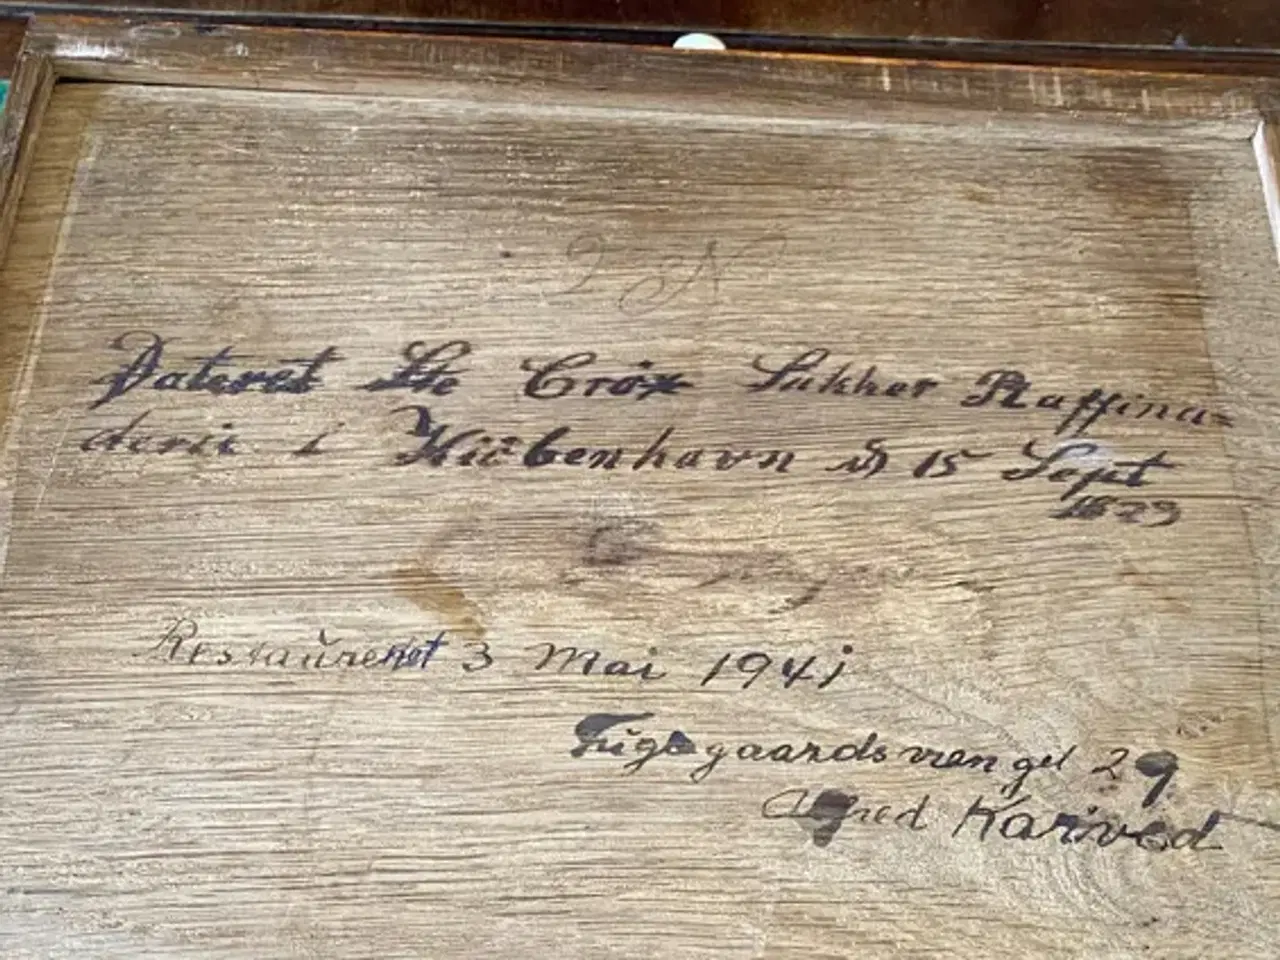 Dateret Ste Croix Sukker Raffina=
derie i Kiøbenhavn d 15 Sept
1829
Restaureret 3 Mai 1941
Fuglegaardsvænget 29
Alfred Karved